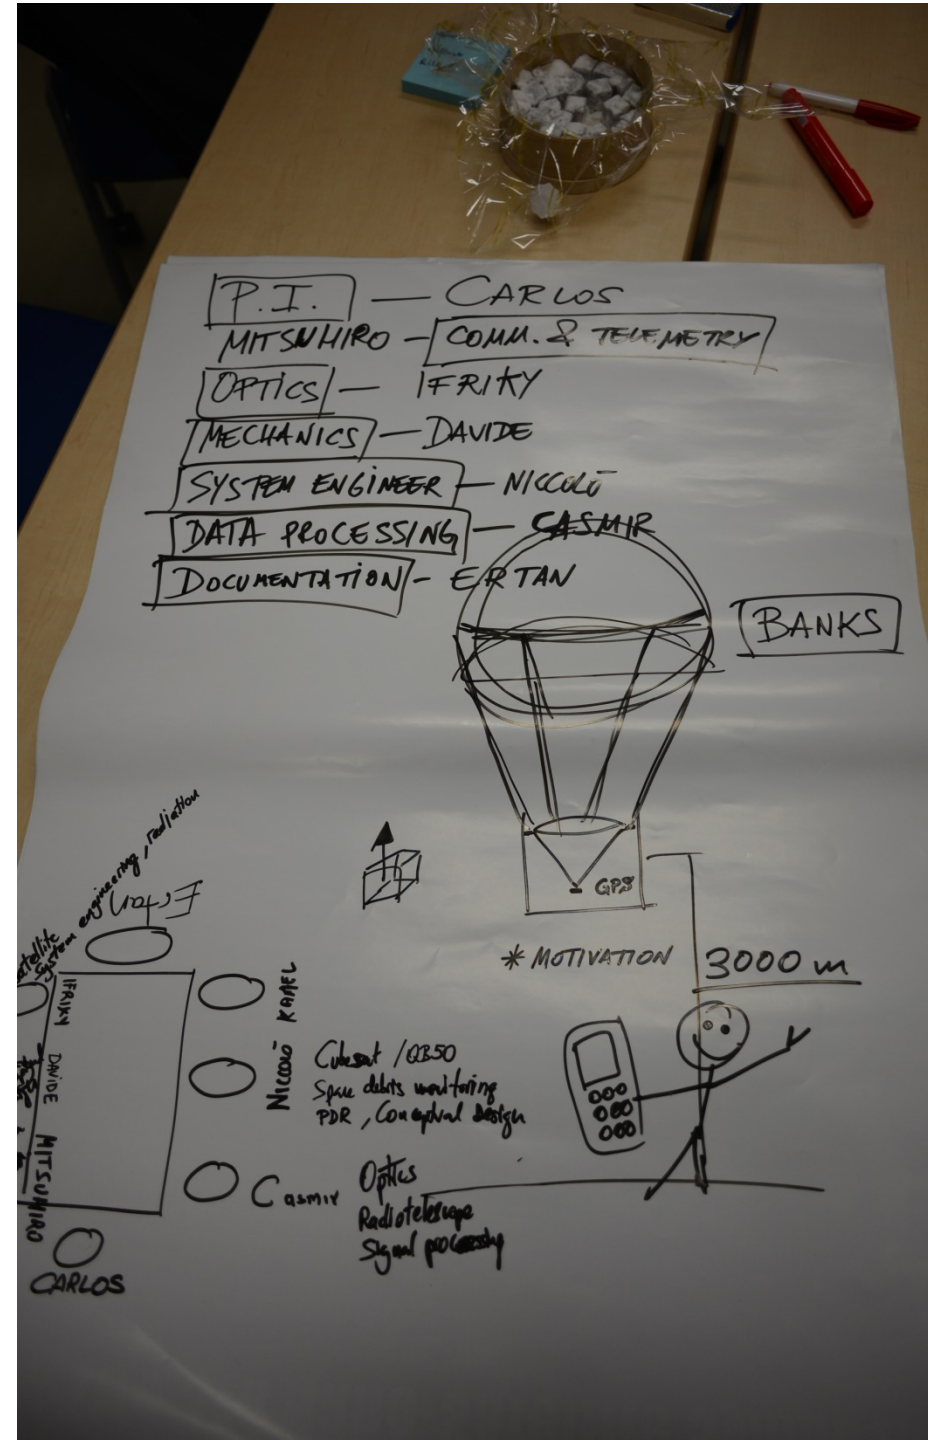 P.I. — CARLOS
MITSUHIRO - COMM. & TELEMETRY
OPTICS — IFRIKY
MECHANICS — DAVIDE
SYSTEM ENGINEER — NICCOLÒ
DATA PROCESSING — CASMIR
DOCUMENTATION - ERTAN
BANKS
GPS
* MOTIVATION
3000 m
System engineering, radiation
Ertan
IFRIKY
DAVIDE
MITSUHIRO
CARLOS
KAMEL
Niccolò
Cubesat / QB50
Space debris monitoring
PDR, Conceptual Design
Casmir
Optics
Radiotelescope
Signal processing